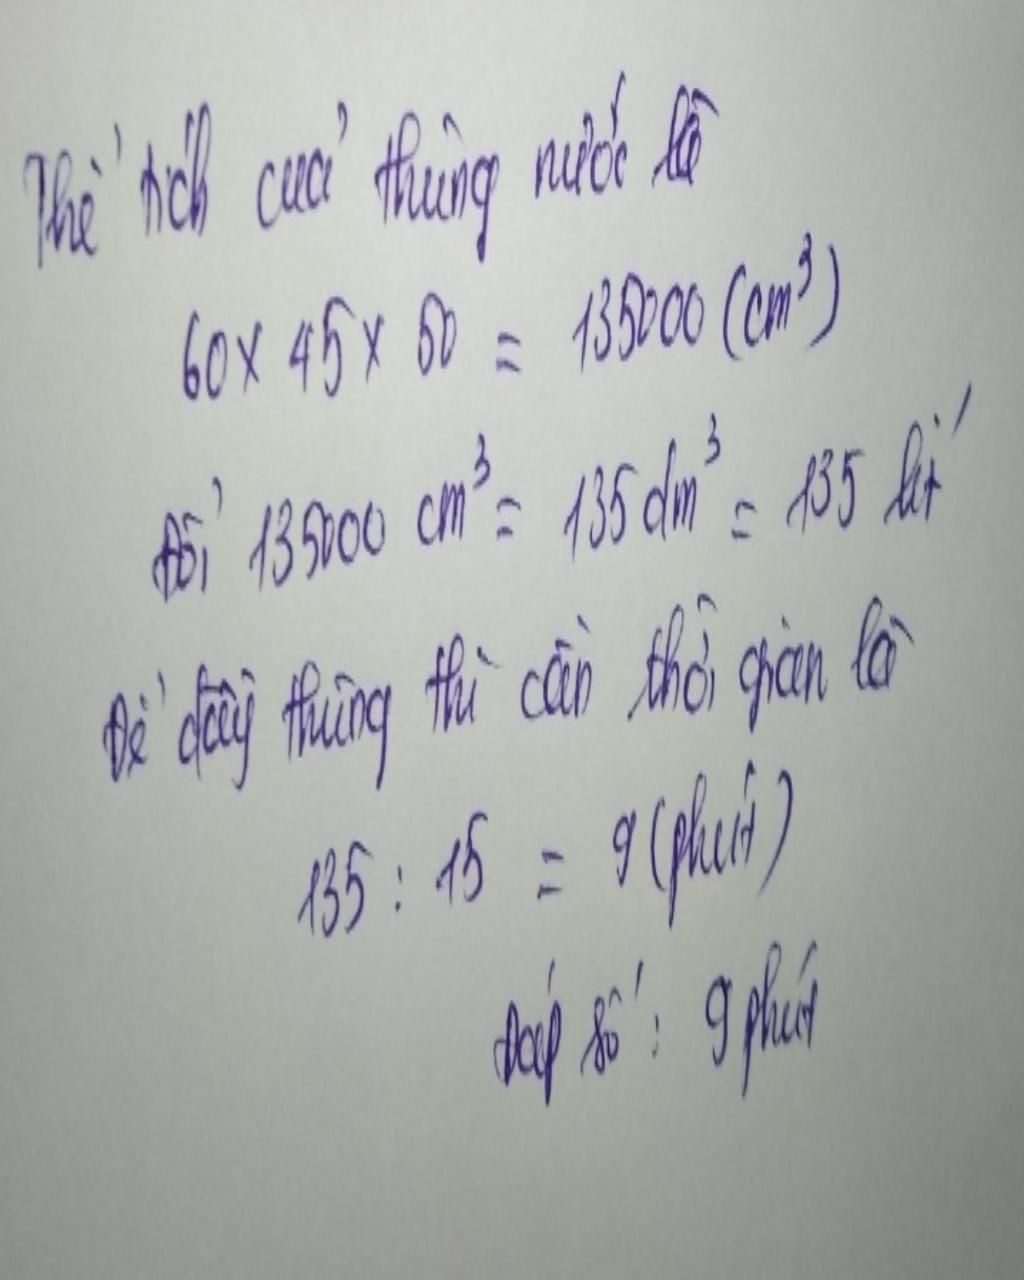 Thể tích của thùng nước là
60 x 45 x 50 = 135000 (cm³)
Đổi 135000 cm³ = 135 dm³ = 135 lít
Để đầy thùng thì cần thời gian là
135 : 15 = 9 (phút)
Đáp số : 9 phút